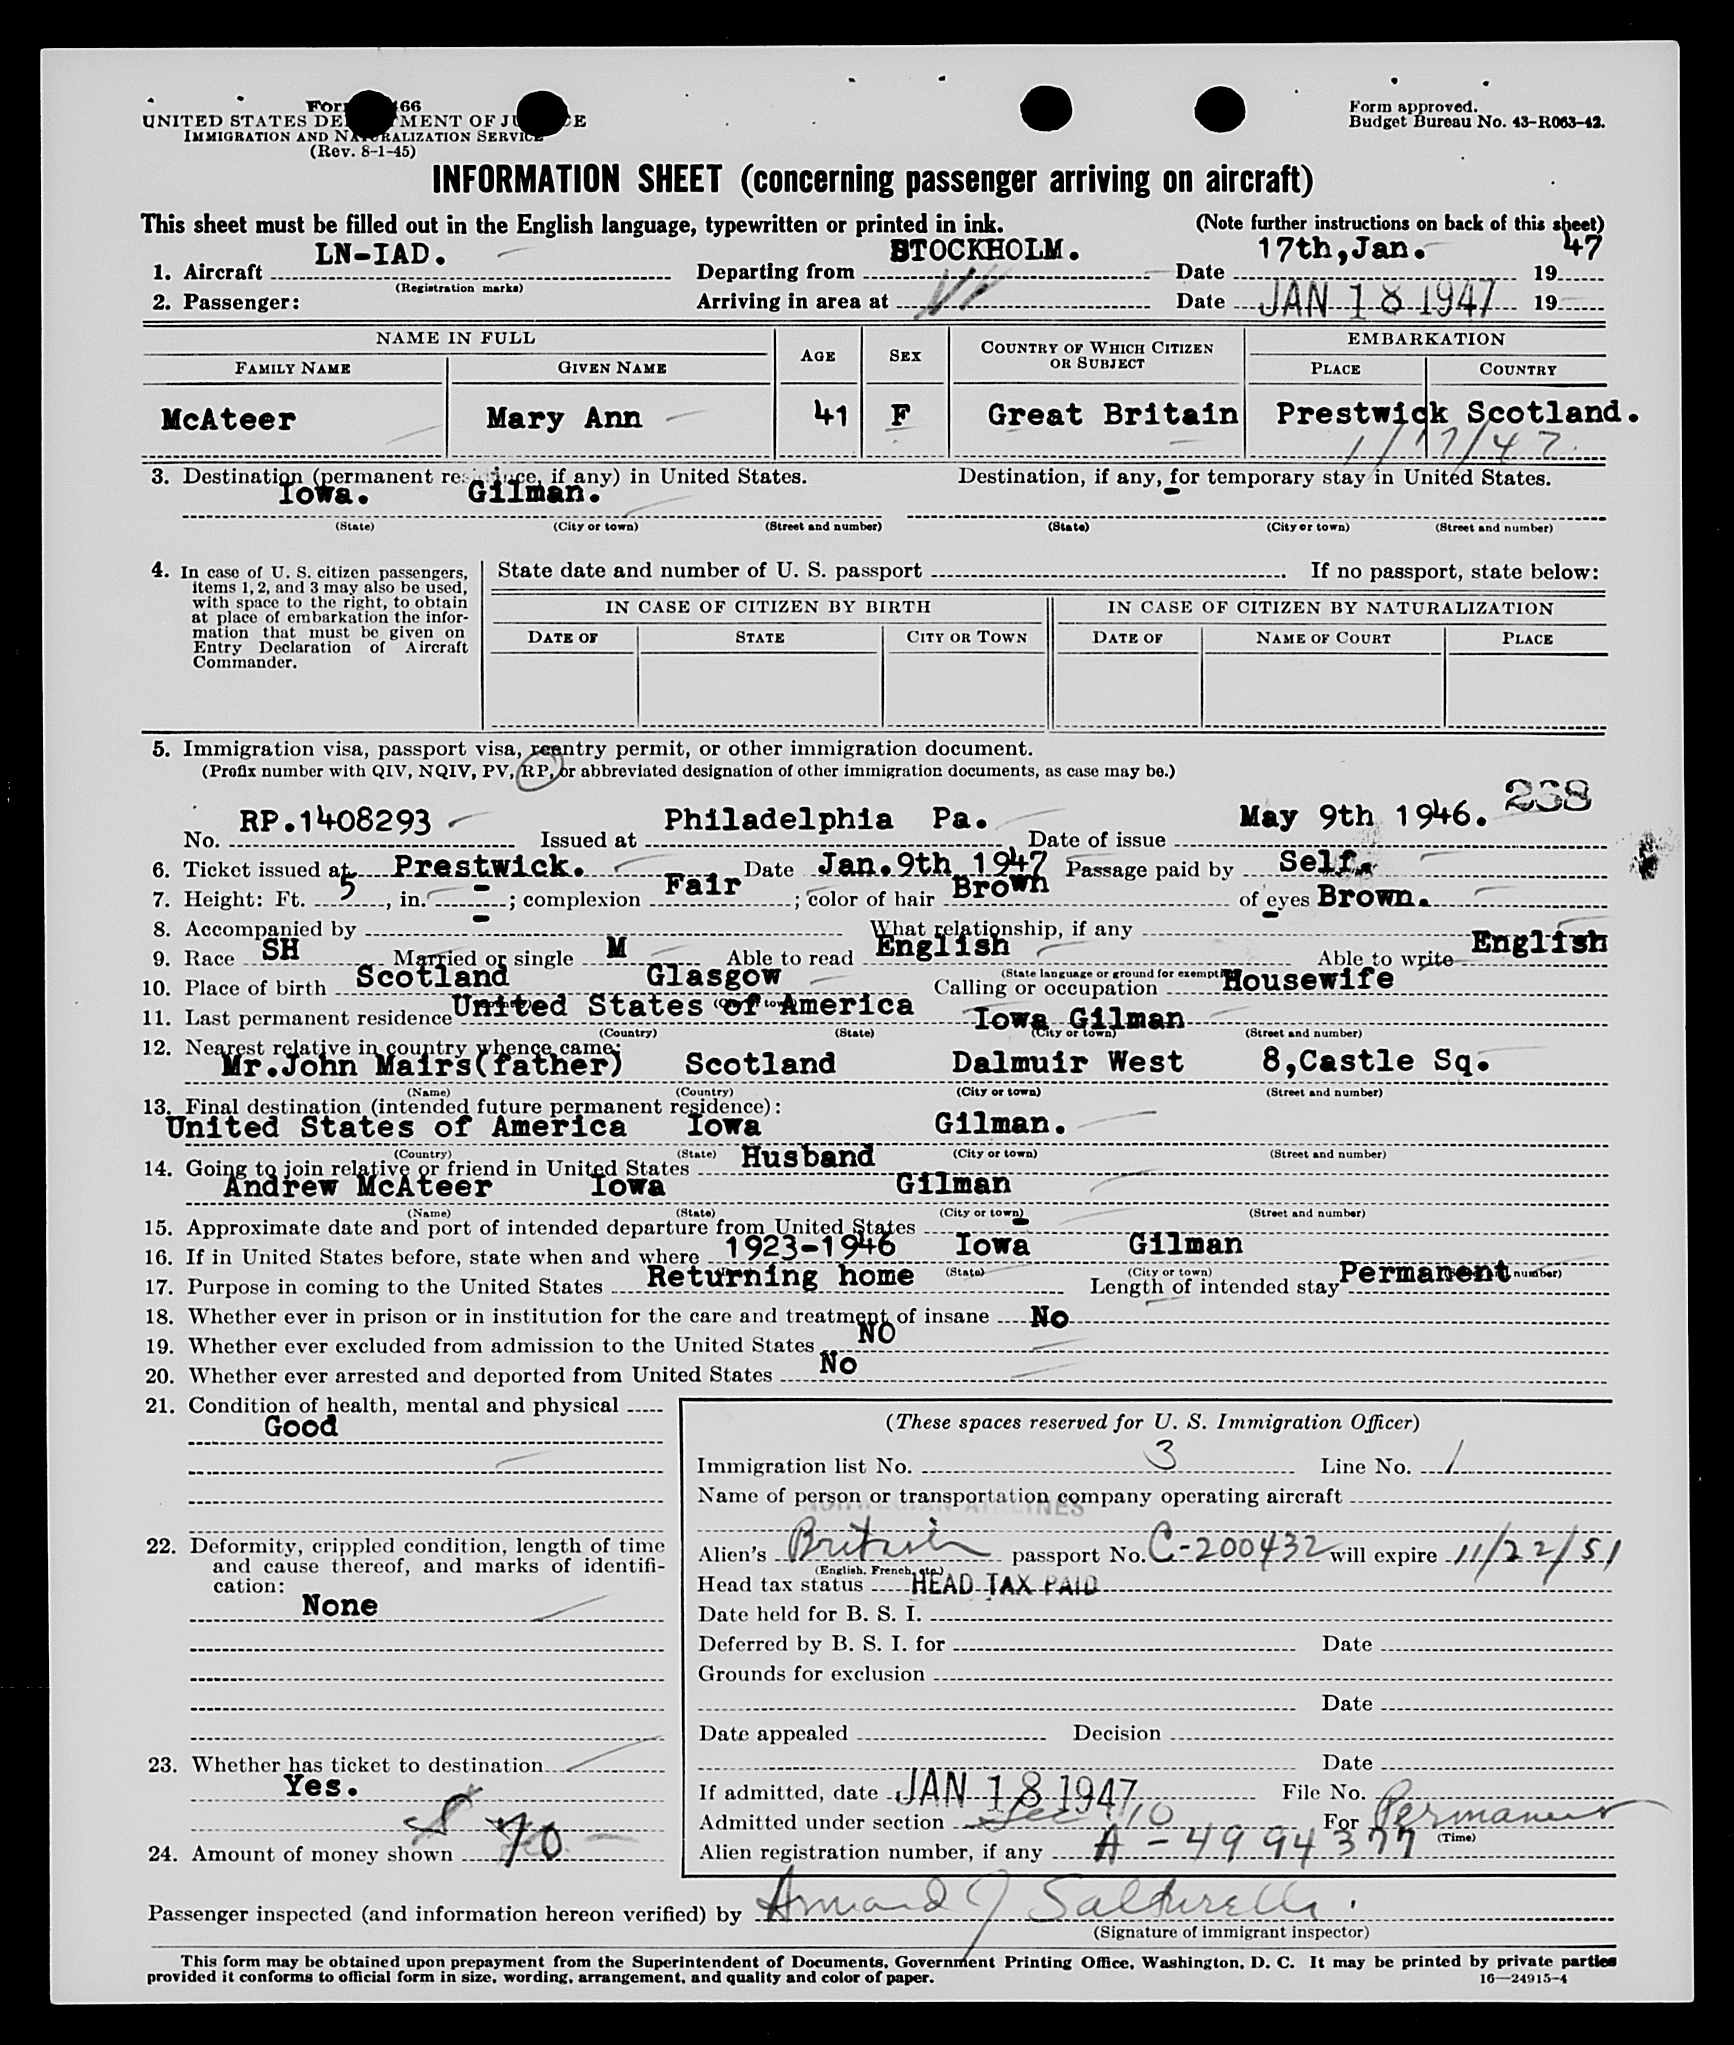 Form 466
UNITED STATES DEPARTMENT OF JUSTICE
IMMIGRATION AND NATURALIZATION SERVICE
(Rev. 8-1-45)
Form approved.
Budget Bureau No. 43-R063-42.
INFORMATION SHEET (concerning passenger arriving on aircraft)
This sheet must be filled out in the English language, typewritten or printed in ink. (Note further instructions on back of this sheet)
1. Aircraft LN-IAD. Departing from STOCKHOLM. Date 17th,Jan. 1947
(Registration marks)
2. Passenger: Arriving in area at Date JAN 18 1947 19
NAME IN FULL AGE SEX COUNTRY OF WHICH CITIZEN OR SUBJECT EMBARKATION
FAMILY NAME GIVEN NAME PLACE COUNTRY
McAteer Mary Ann 41 F Great Britain Prestwick Scotland.
1/17/47
3. Destination (permanent residence, if any) in United States. Destination, if any, for temporary stay in United States.
Iowa. Gilman. -
(State) (City or town) (Street and number) (State) (City or town) (Street and number)
4. In case of U. S. citizen passengers, items 1, 2, and 3 may also be used, with space to the right, to obtain at place of embarkation the information that must be given on Entry Declaration of Aircraft Commander.
State date and number of U. S. passport . If no passport, state below:
IN CASE OF CITIZEN BY BIRTH IN CASE OF CITIZEN BY NATURALIZATION
DATE OF STATE CITY OR TOWN DATE OF NAME OF COURT PLACE
5. Immigration visa, passport visa, reentry permit, or other immigration document.
(Prefix number with QIV, NQIV, PV, RP, or abbreviated designation of other immigration documents, as case may be.)
238
No. RP.1408293 Issued at Philadelphia Pa. Date of issue May 9th 1946.
6. Ticket issued at Prestwick. Date Jan.9th 1947 Passage paid by Self.
7. Height: Ft. 5, in. -; complexion Fair; color of hair Brown of eyes Brown.
8. Accompanied by - What relationship, if any -
9. Race SH Married or single M Able to read English Able to write English
(State language or ground for exemption)
10. Place of birth Scotland Glasgow Calling or occupation Housewife
(Country) (City or town)
11. Last permanent residence United States of America Iowa Gilman
(Country) (State) (City or town) (Street and number)
12. Nearest relative in country whence came:
Mr.John Mairs(father) Scotland Dalmuir West 8,Castle Sq.
(Name) (Country) (City or town) (Street and number)
13. Final destination (intended future permanent residence):
United States of America Iowa Gilman.
(Country) (State) (City or town) (Street and number)
14. Going to join relative or friend in United States Husband
Andrew McAteer Iowa Gilman
(Name) (State) (City or town) (Street and number)
15. Approximate date and port of intended departure from United States -
16. If in United States before, state when and where 1923-1946 Iowa Gilman
(State) (City or town) (Street and number)
17. Purpose in coming to the United States Returning home Length of intended stay Permanent
18. Whether ever in prison or in institution for the care and treatment of insane No
19. Whether ever excluded from admission to the United States NO
20. Whether ever arrested and deported from United States No
21. Condition of health, mental and physical
Good
22. Deformity, crippled condition, length of time and cause thereof, and marks of identification:
None
23. Whether has ticket to destination
Yes.
24. Amount of money shown $ 70
(These spaces reserved for U. S. Immigration Officer)
Immigration list No. 3 Line No. 1
Name of person or transportation company operating aircraft
NORWEGIAN AIRLINES
Alien's British passport No. C-200432 will expire 11/22/51
(English, French, etc.)
Head tax status HEAD TAX PAID
Date held for B. S. I.
Deferred by B. S. I. for Date
Grounds for exclusion
Date
Date appealed Decision
Date
If admitted, date JAN 18 1947 File No.
Admitted under section Sec 10 For Permanent
(Time)
Alien registration number, if any A-4994377
Passenger inspected (and information hereon verified) by Armand J Salturelli
(Signature of immigrant inspector)
This form may be obtained upon prepayment from the Superintendent of Documents, Government Printing Office, Washington, D. C. It may be printed by private parties
provided it conforms to official form in size, wording, arrangement, and quality and color of paper. 16—24915-4